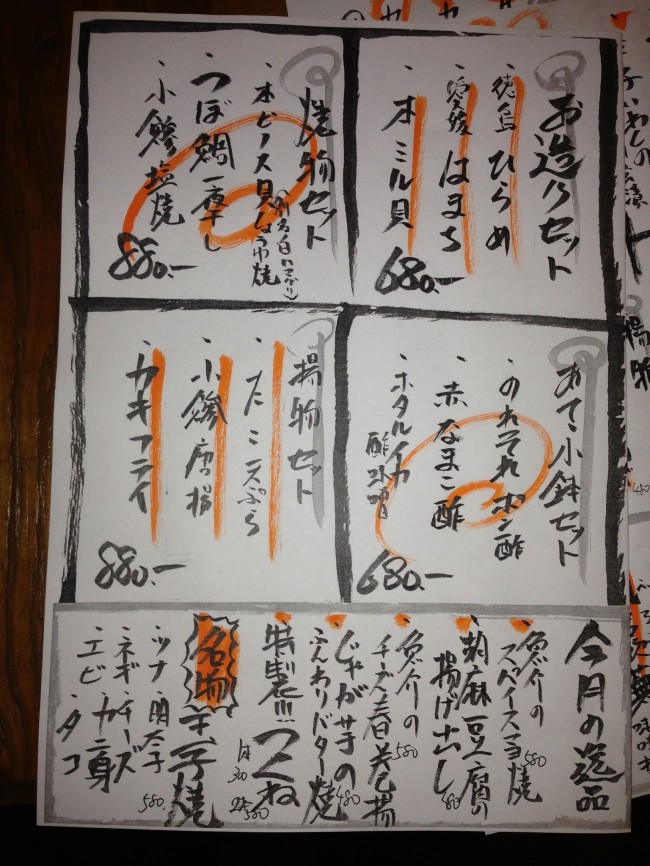 お造りセット
・徳島 ひらめ
・愛媛 はまち
・本ミル貝
680.-
焼物セット
・本ビノス貝しょうゆ焼
(別名白はまぐり)
・つぼ鯛一夜干し
・小鯵塩焼
880.-
あて小鉢セット
・のれそれポン酢
・赤なまこ酢
・ホタルイカ
酢味噌
680.-
揚物セット
・たこ天ぷら
・小鯵唐揚
・カキフライ
880.-
今月の逸品
魚介の
スパイスマヨ焼
580
胡麻豆腐の
揚げ出し
480
魚介の
チーズ春巻揚
580
じゃが芋の
ふんわりバター焼
480
特製!!!つくね
1本 30
2本 580
名物
玉子焼
580
・ツナ・明太子
・ネギ・チーズ
・カニ身
・エビ・タコ